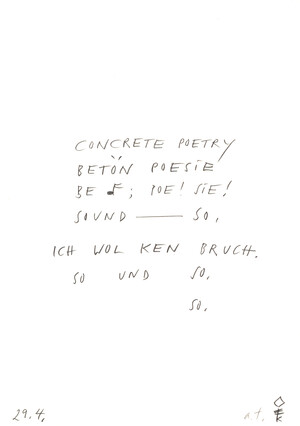 CONCRETE POETRY
BETÖN POESIE
BE ♫; POE! SIE!
SOUND —— SO,
ICH WOL KEN BRUCH.
SO UND SO.
SO.
29.4.
a.t.